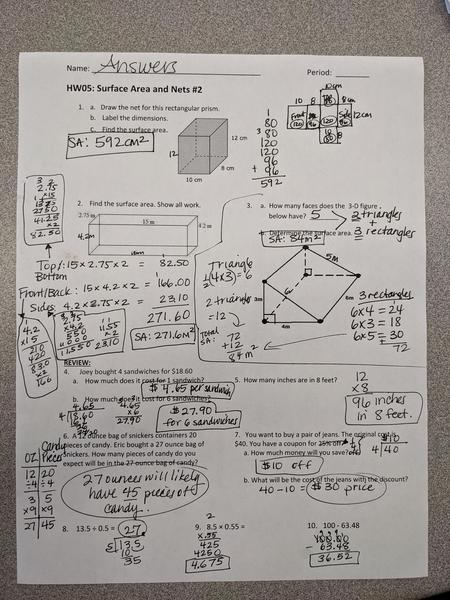 Name: Answers
Period:
HW05: Surface Area and Nets #2
1. a. Draw the net for this rectangular prism.
b. Label the dimensions.
c. Find the surface area.
SA: 592cm²
12
12 cm
8 cm
10 cm
1
80
3 80
120
120
96
+ 96
592
10cm
Top
80
8
10 8
8cm
Front
120
96
120
Side
96
12cm
10
80
8
2. Find the surface area. Show all work.
2.75 m
15 m
4.2m
4.2 m
15m
2.75
x 15
1375
2750
41.25
x 2
82.50
Top/: 15 x 2.75 x 2 = 82.50
Bottom
Front/Back: 15 x 4.2 x 2 = 166.00
Sides: 4.2 x 2.75 x 2 = 23.10
271.60
SA: 271.6m²
4.2
x 15
210
420
x 2
2.75
x 4.2
550
11000
11.550
11.55
x 2
23.10
3. a. How many faces does the 3-D figure
below have? 5
2 triangles
+
3 rectangles
b. Determine the surface area.
SA: 84m²
Triangle
½(4x3)=6
2 triangles
=12
Total
SA:
72
+12
84m²
5m
6
3m
6m
4m
3 rectangles
6x4 = 24
6x3 = 18
6x5 = 30
+
72
REVIEW:
4. Joey bought 4 sandwiches for $18.60
a. How much does it cost for 1 sandwich?
$4.65 per sandwich
b. How much does it cost for 6 sandwiches?
4.65
4 18.60
4.65
x 6
27.90
$27.90
for 6 sandwiches
5. How many inches are in 8 feet?
12
x 8
96 inches
in 8 feet.
6. A 12 ounce bag of snickers containers 20
pieces of candy. Eric bought a 27 ounce bag of
snickers. How many pieces of candy do you
expect will be in the 27 ounce bag of candy?
OZ
Candy
Pieces
12 20
÷4 ÷4
3 5
x9 x9
27 45
27 ounces will likely
have 45 pieces of
candy.
7. You want to buy a pair of jeans. The original cost is
$40. You have a coupon for 25% off.
a. How much money will you save?
$10 off
$10
4 40
b. What will be the cost of the jeans with the discount?
40-10 = $30 price
8. 13.5 ÷ 0.5 = 27
5 13.5
10
35
9. 8.5 x 0.55 =
2
x .55
425
4250
4.675
10. 100 - 63.48
100.00
- 63.48
36.52